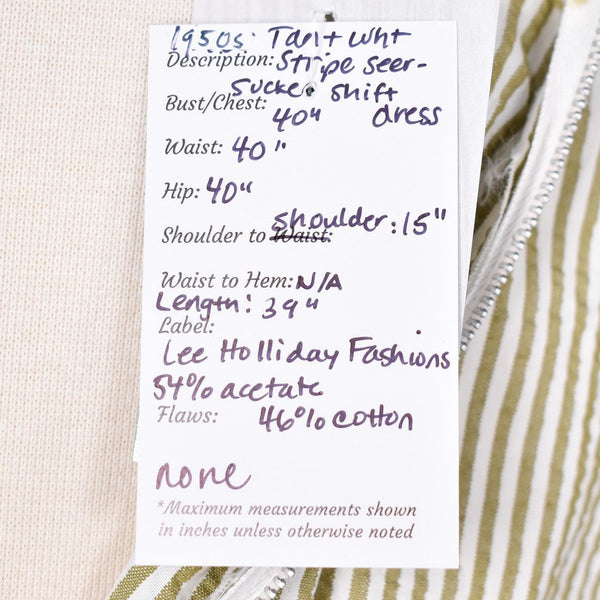 1950s: Tan + wht
Description: Stripe seer-
sucker shift
Bust/Chest: 40" dress
Waist: 40"
Hip: 40"
Shoulder to Waist: shoulder: 15"
Waist to Hem: N/A
Length: 39"
Label:
Lee Holliday Fashions
54% acetate
Flaws: 46% cotton
none
*Maximum measurements shown
in inches unless otherwise noted